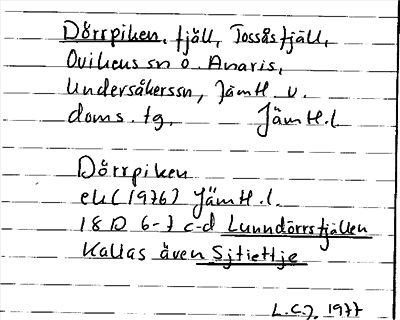 Dörrpiken, fjäll, Tossåsfjäll,
Ovikens sn o. Anaris,
Undersåkerssn, Jämtl. v.
doms. tg, Jämtl.l
Dörrpiken
ek (1976) Jämtl.l.
18 D 6-7 c-d Lunndörrsfjällen
Kallas även Sjtiettje
L.C.J. 1977